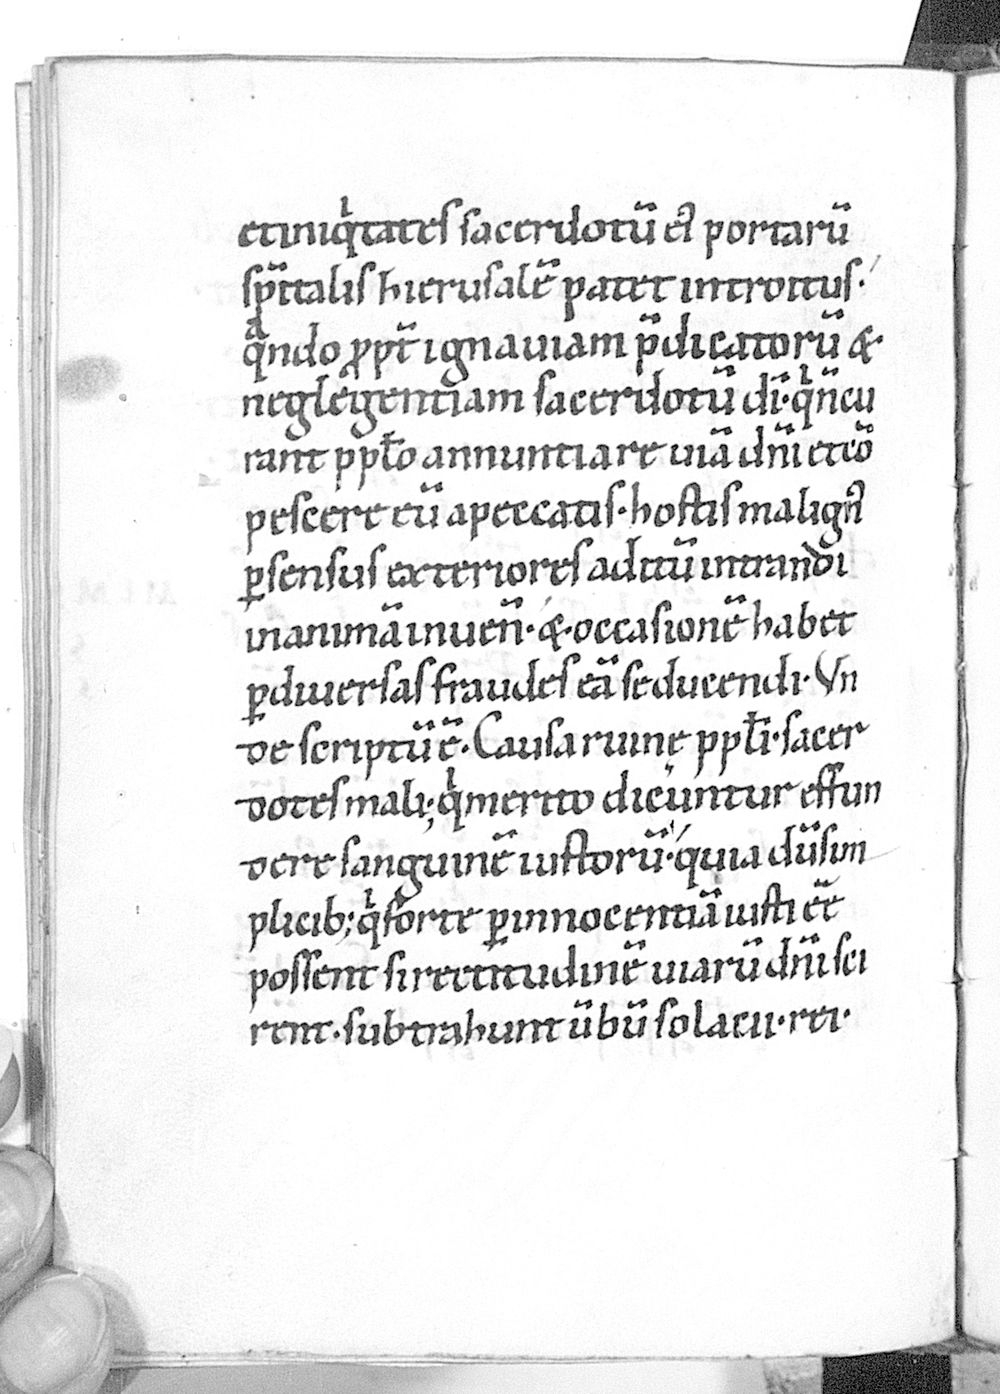 et iniqͥtates sacerdotũ eiꝰ portarũ
sp̃italis hierusalẽ patet introitus·
qͣndo ꝓpt̃ ignauiam p̃dicatorũ &·
neglegentiam sacerdotũ di·qͥ ñ cu
rant ppło annuntiare uiã dñi et cõ
pescere eũ a peccatis·hostis malignꝰ
ꝑ sensus exteriores aditũ intrandi
in animã inuen̄·&·occasionẽ habet
ꝑ diuersas fraudes eã seducendi·Vn
de scriptũ ẽ·Causa ruine ppłi·sacer
dotes mali;qͥ merito dicuntur effun
dere sanguinẽ iustorũ·quia dũ sim
plicib;qͥ forte ꝑ innocentiã iusti eẽ
possent si rectitudinẽ uiarũ dñi sci
rent·subtrahunt ũbũ solacii·rei·